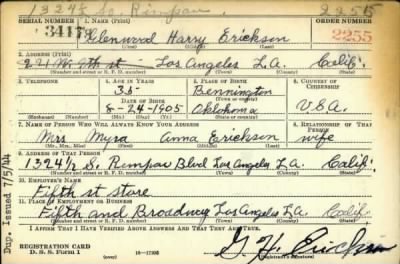 1324½ So. Rimpau 2255
SERIAL NUMBER 1. NAME (Print) ORDER NUMBER
3417 Glenwood Harry Erickson 2255
(First) (Middle) (Last)
2. ADDRESS (Print)
W 9th st Los Angeles L.A. Calif.
(Number and street or R. F. D. number) (Town) (County) (State)
3. TELEPHONE 4. AGE IN YEARS 5. PLACE OF BIRTH 6. COUNTRY OF CITIZENSHIP
35 Bennington
DATE OF BIRTH
8-24-1905 Oklahoma U.S.A.
(Exchange) (Number) (Mo.) (Day) (Yr.) (State or country)
7. NAME OF PERSON WHO WILL ALWAYS KNOW YOUR ADDRESS 8. RELATIONSHIP OF THAT PERSON
Mrs Myra Anna Erickson wife
(Mr., Mrs., Miss) (First) (Middle) (Last)
9. ADDRESS OF THAT PERSON
1324½ S. Rimpau Blvd Los Angeles L.A. Calif.
(Number and street or R. F. D. number) (Town) (County) (State)
10. EMPLOYER'S NAME
Fifth st Store
11. PLACE OF EMPLOYMENT OR BUSINESS
Fifth and Broadway Los Angeles L.A. Calif.
(Number and street or R. F. D. number) (Town) (County) (State)
I AFFIRM THAT I HAVE VERIFIED ABOVE ANSWERS AND THAT THEY ARE TRUE.
REGISTRATION CARD
D. S. S. Form 1 (over) G. H. Erickson
(Registrant's signature)
Dup. Issued 7/5/44